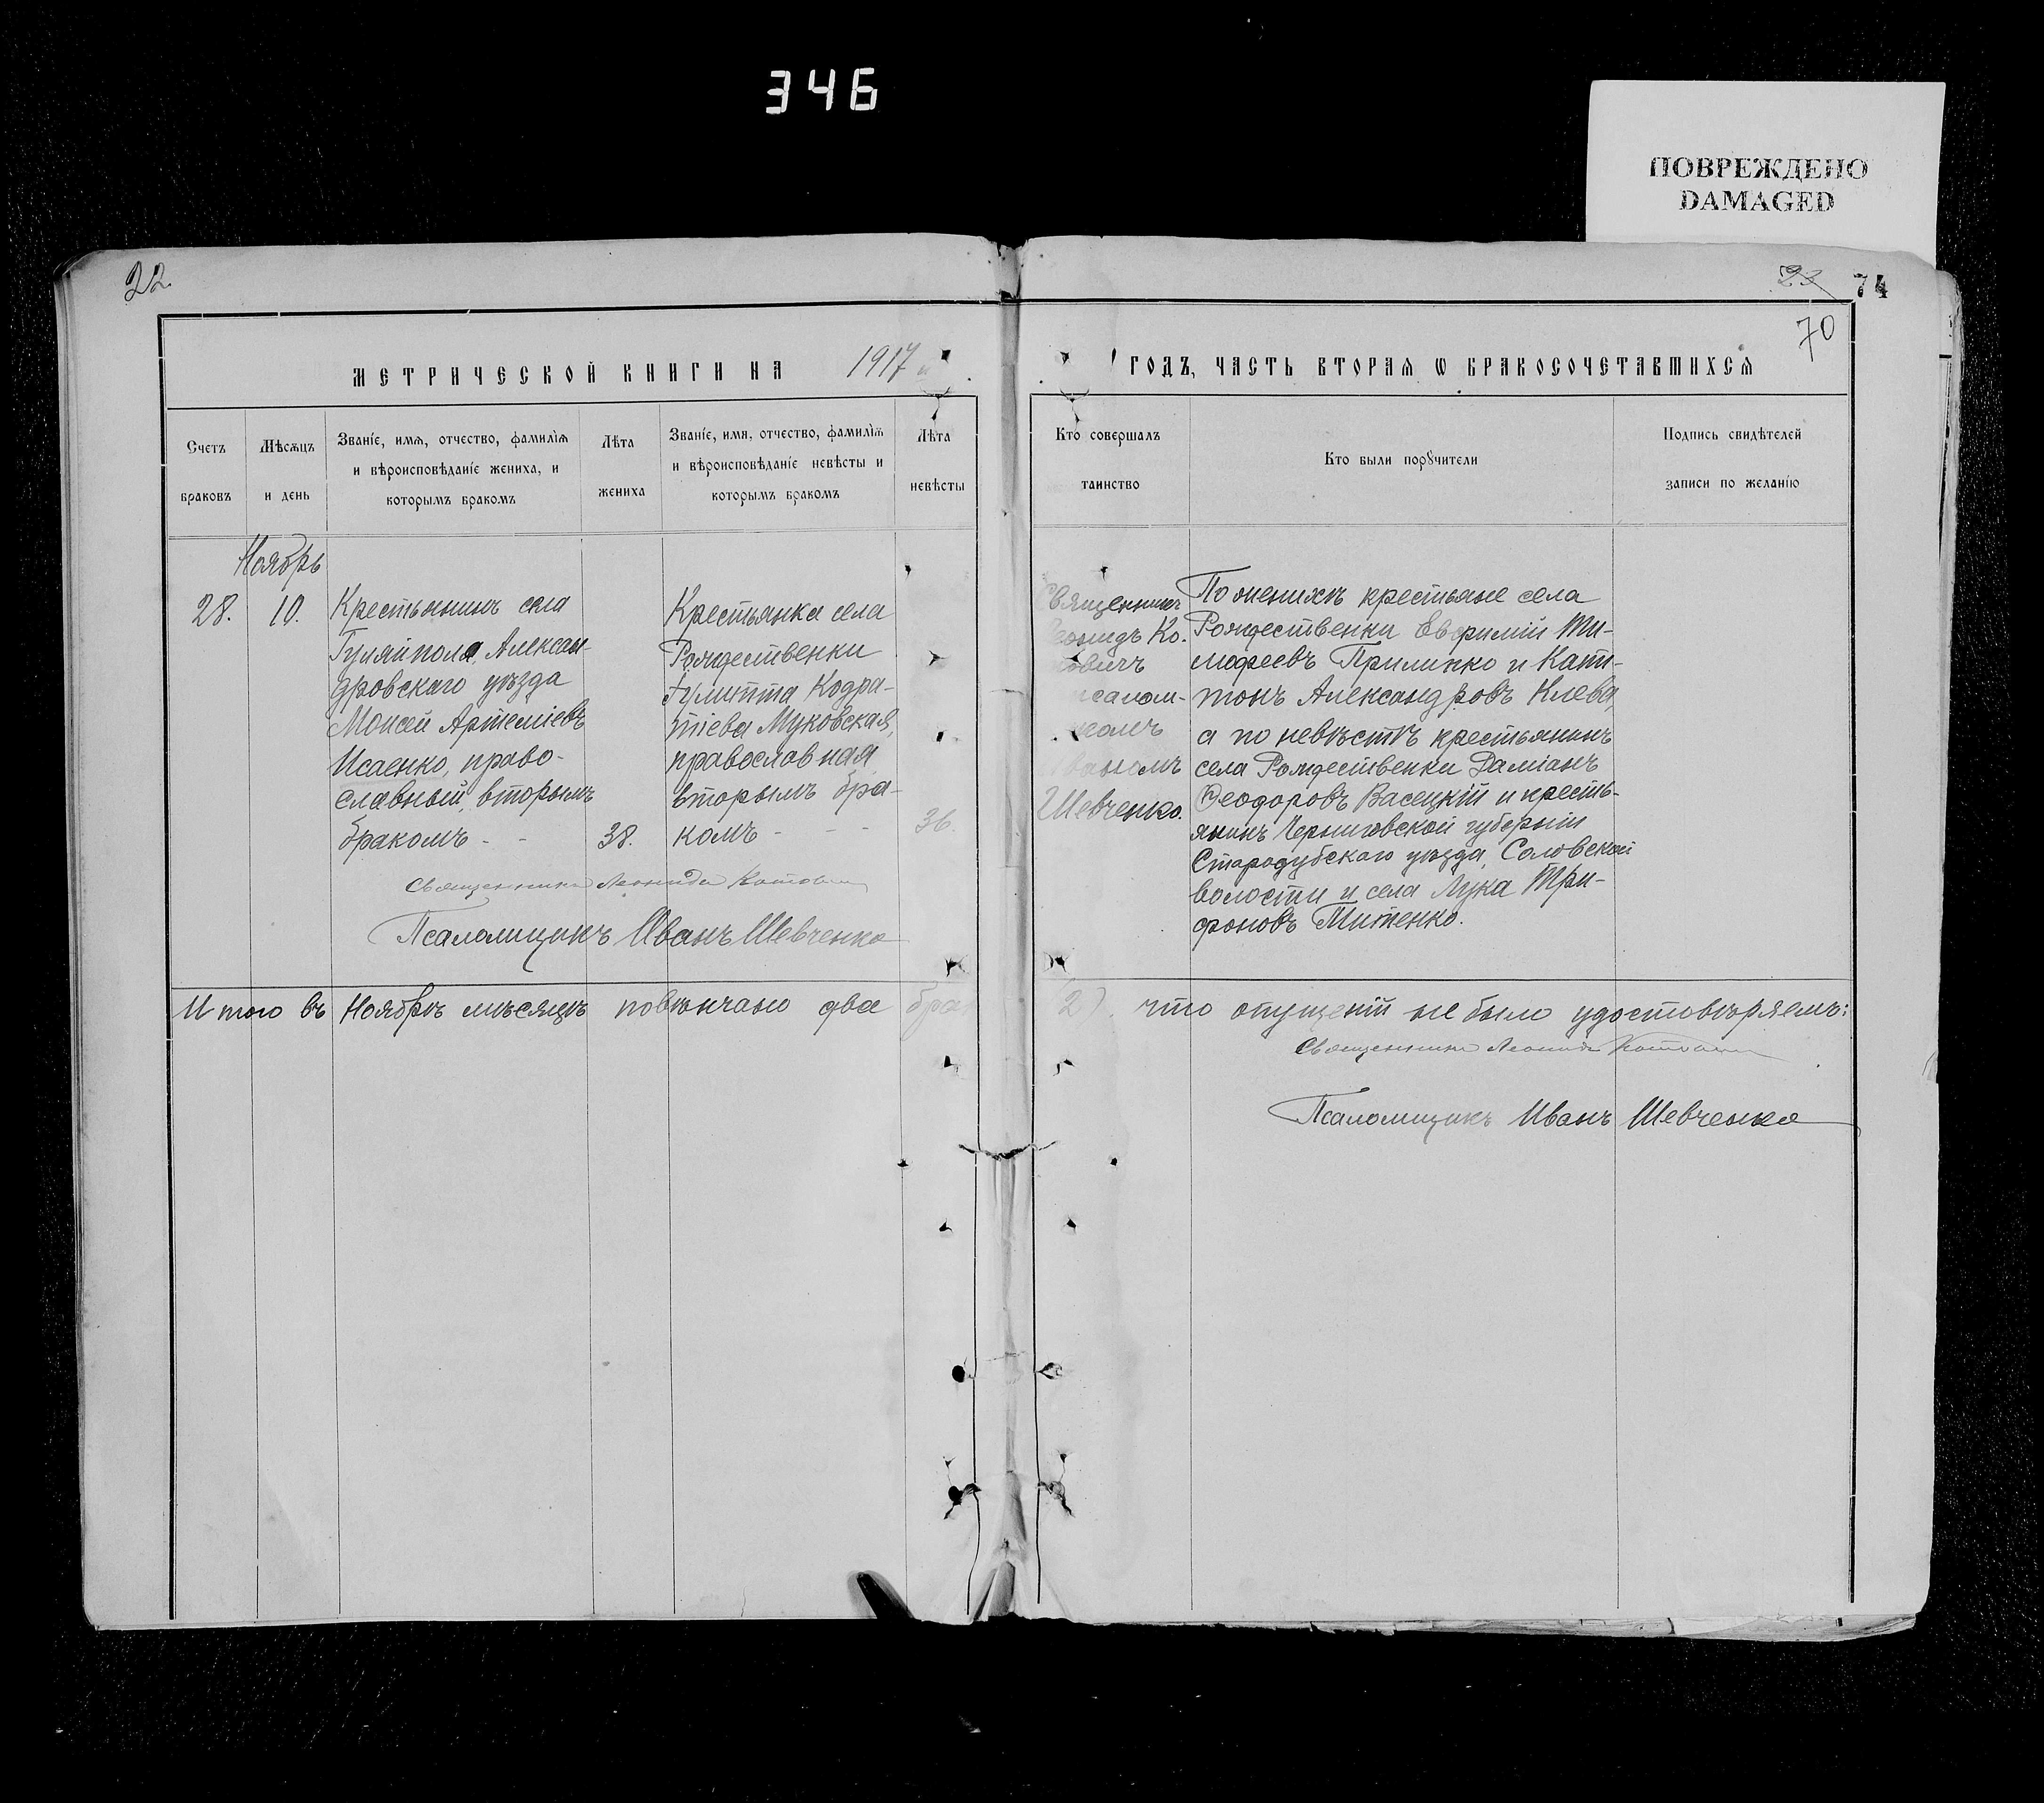 346
ПОВРЕЖДЕНО
DAMAGED
22.
23
74
70
МЕТРИЧЕСКОЙ КНИГИ НА 1917
ГОДЪ, ЧАСТЬ ВТОРАЯ Ѡ БРАКОСОЧЕТАВШИХСЯ
Счетъ
браковъ
Мѣсяцъ
и день
Званіе, имя, отчество, фамилія
и вѣроисповѣданіе жениха, и
которымъ бракомъ
Лѣта
жениха
Званіе, имя, отчество, фамилія
и вѣроисповѣданіе невѣсты и
которымъ бракомъ
Лѣта
невѣсты
Кто совершалъ
таинство
Кто были порꙋчители
Подпись свидѣтелей
записи по желанію
Ноябрь
28.
10.
Крестьянинъ села
Гуляйполя, Алексан-
дровскаго уѣзда
Моисей Артеміевъ
Исаенко, право-
славный, вторымъ
бракомъ - -
38.
Крестьянка села
Рождественки
Кодра-
тіева Муковская,
православная,
вторымъ бра-
комъ - - -
36.
Священникъ
Ко-
товичъ
псалом-
Иваномъ
Шевченко.
По женихѣ крестьяне села
Рождественки Евфимій Ти-
мофеевъ Прилипко и Капи-
тонъ Александровъ Клева,
а по невѣстѣ крестьянинъ
села Рождественки Даміанъ
Ѳеодоровъ Васецкій и кресть-
янинъ Черниговской губерніи
Стародубскаго уѣзда, Соловской
волости и села Лука Три-
фоновъ Митенко.
Священникъ Леонидъ Котовичъ
Псаломщикъ Иванъ Шевченко
Итого въ Ноябрѣ мѣсяцѣ повѣнчано два бра
2). что опущеній не было удостовѣряемъ:
Священникъ Леонидъ Котовичъ
Псаломщикъ Иванъ Шевченко